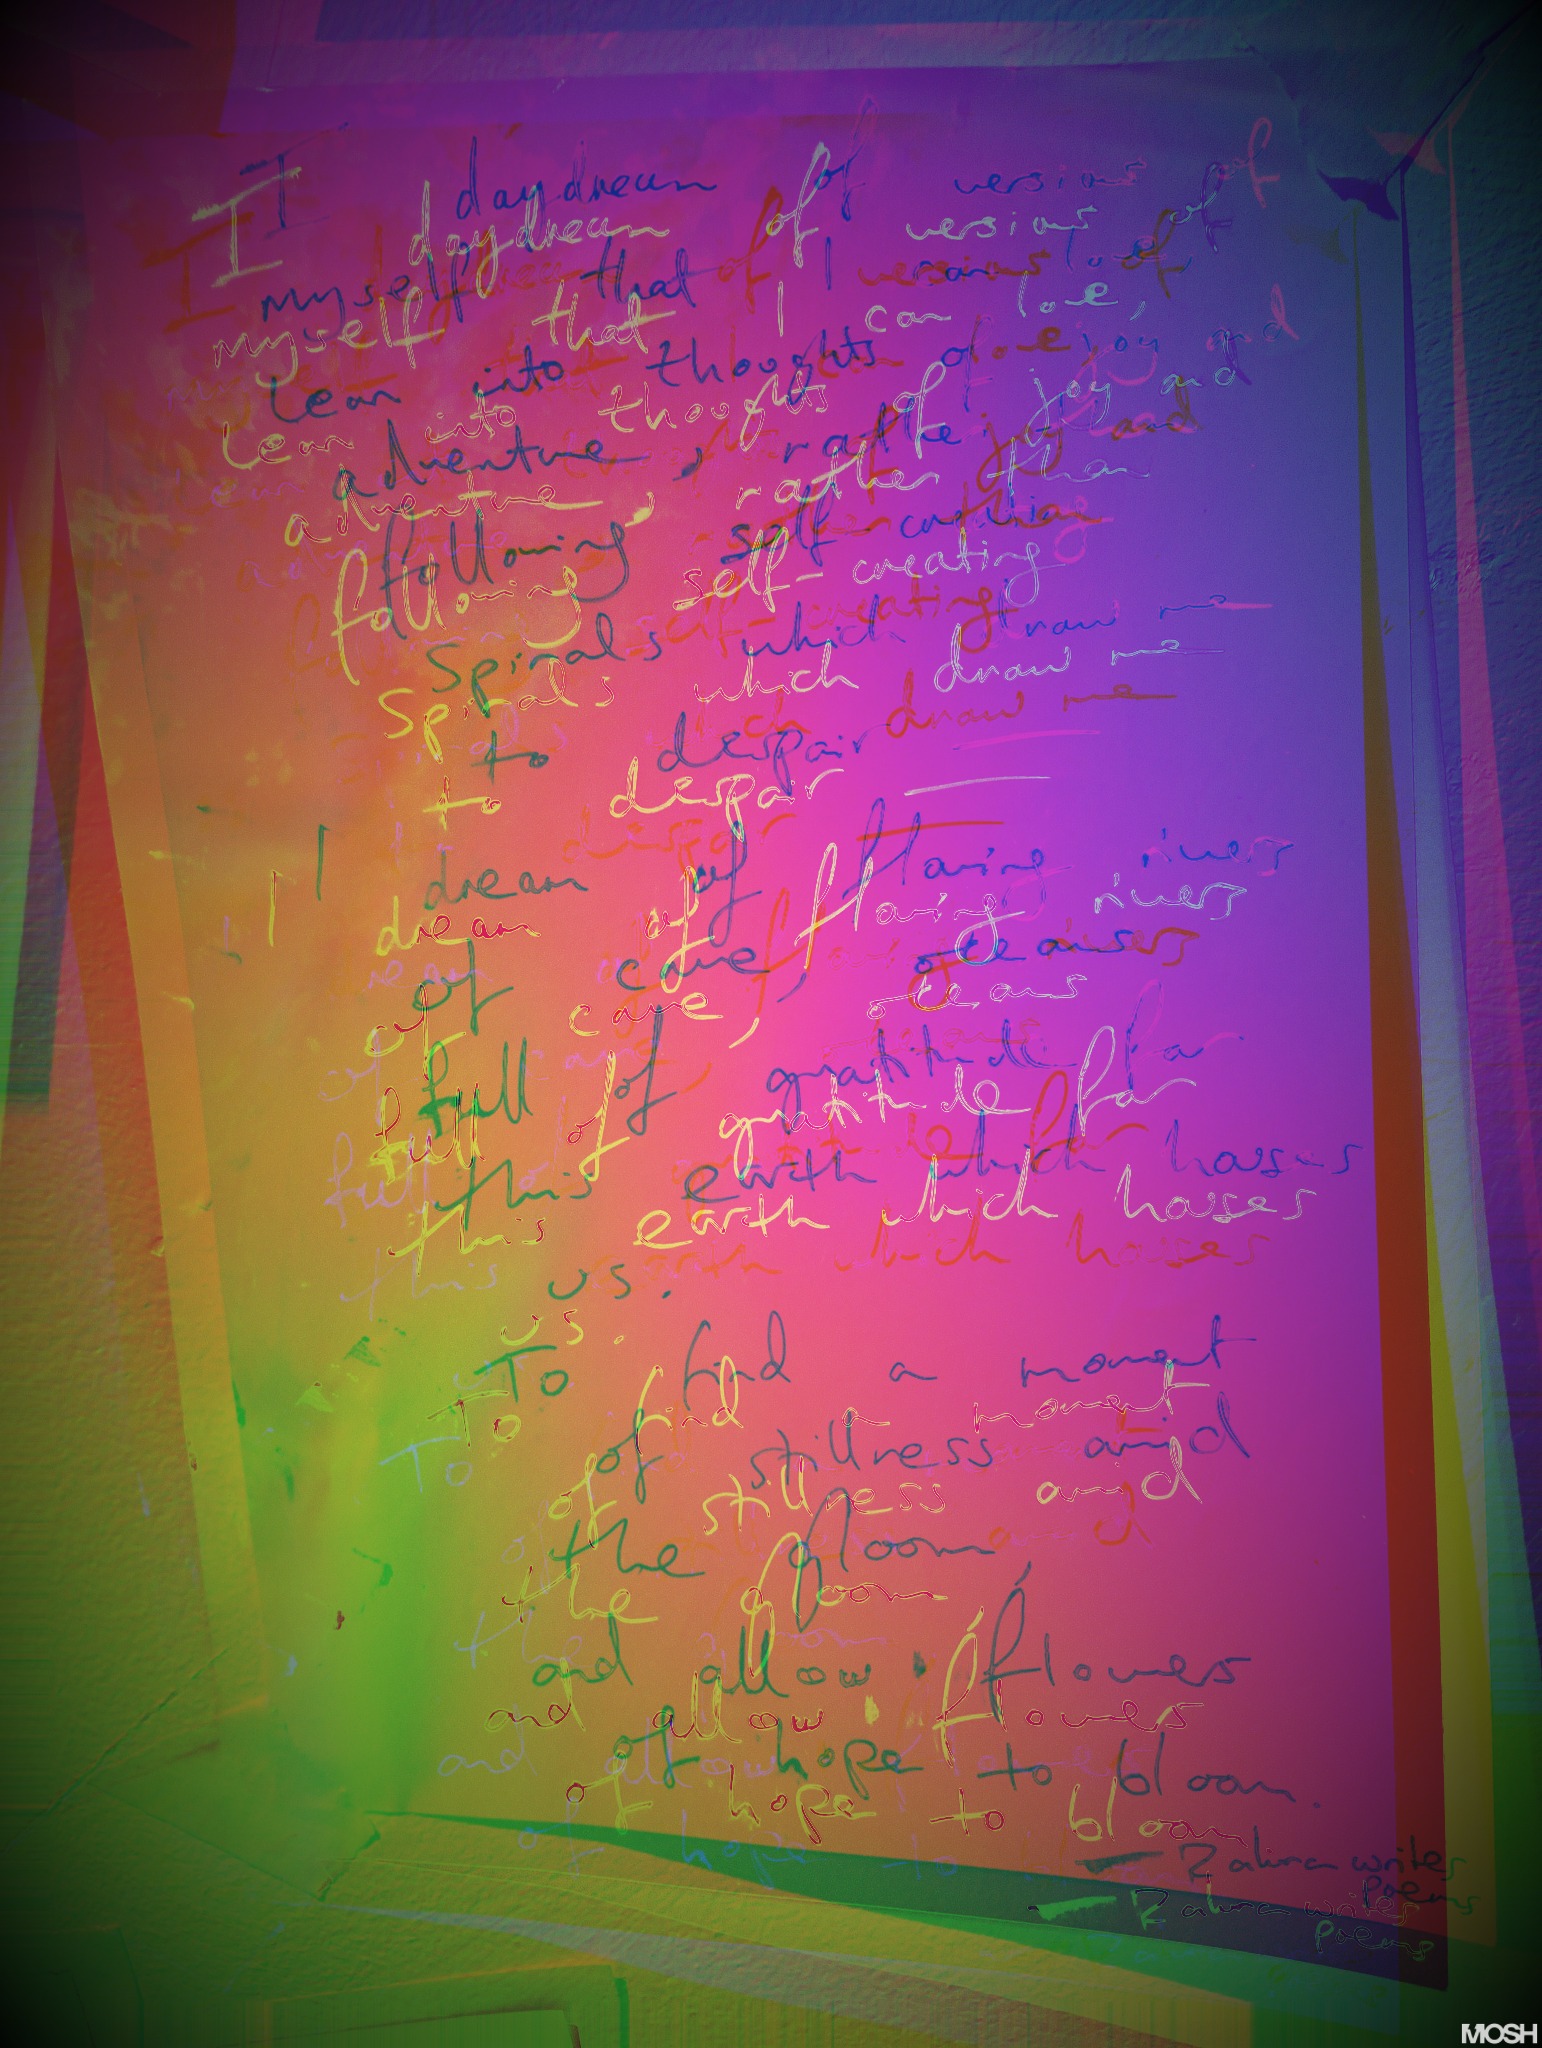 I daydream of versions of
myself that I can love,
lean into thoughts of joy and
adventure, rather than
following self-creating
spirals which draw me
to despair —
I dream of flowing rivers
of care, oceans
full of gratitude for
this earth which houses
us.
To find a moment
of stillness amid
the gloom,
and allow flowers
of hope to bloom.
— Zahra writes
poems
MOSH